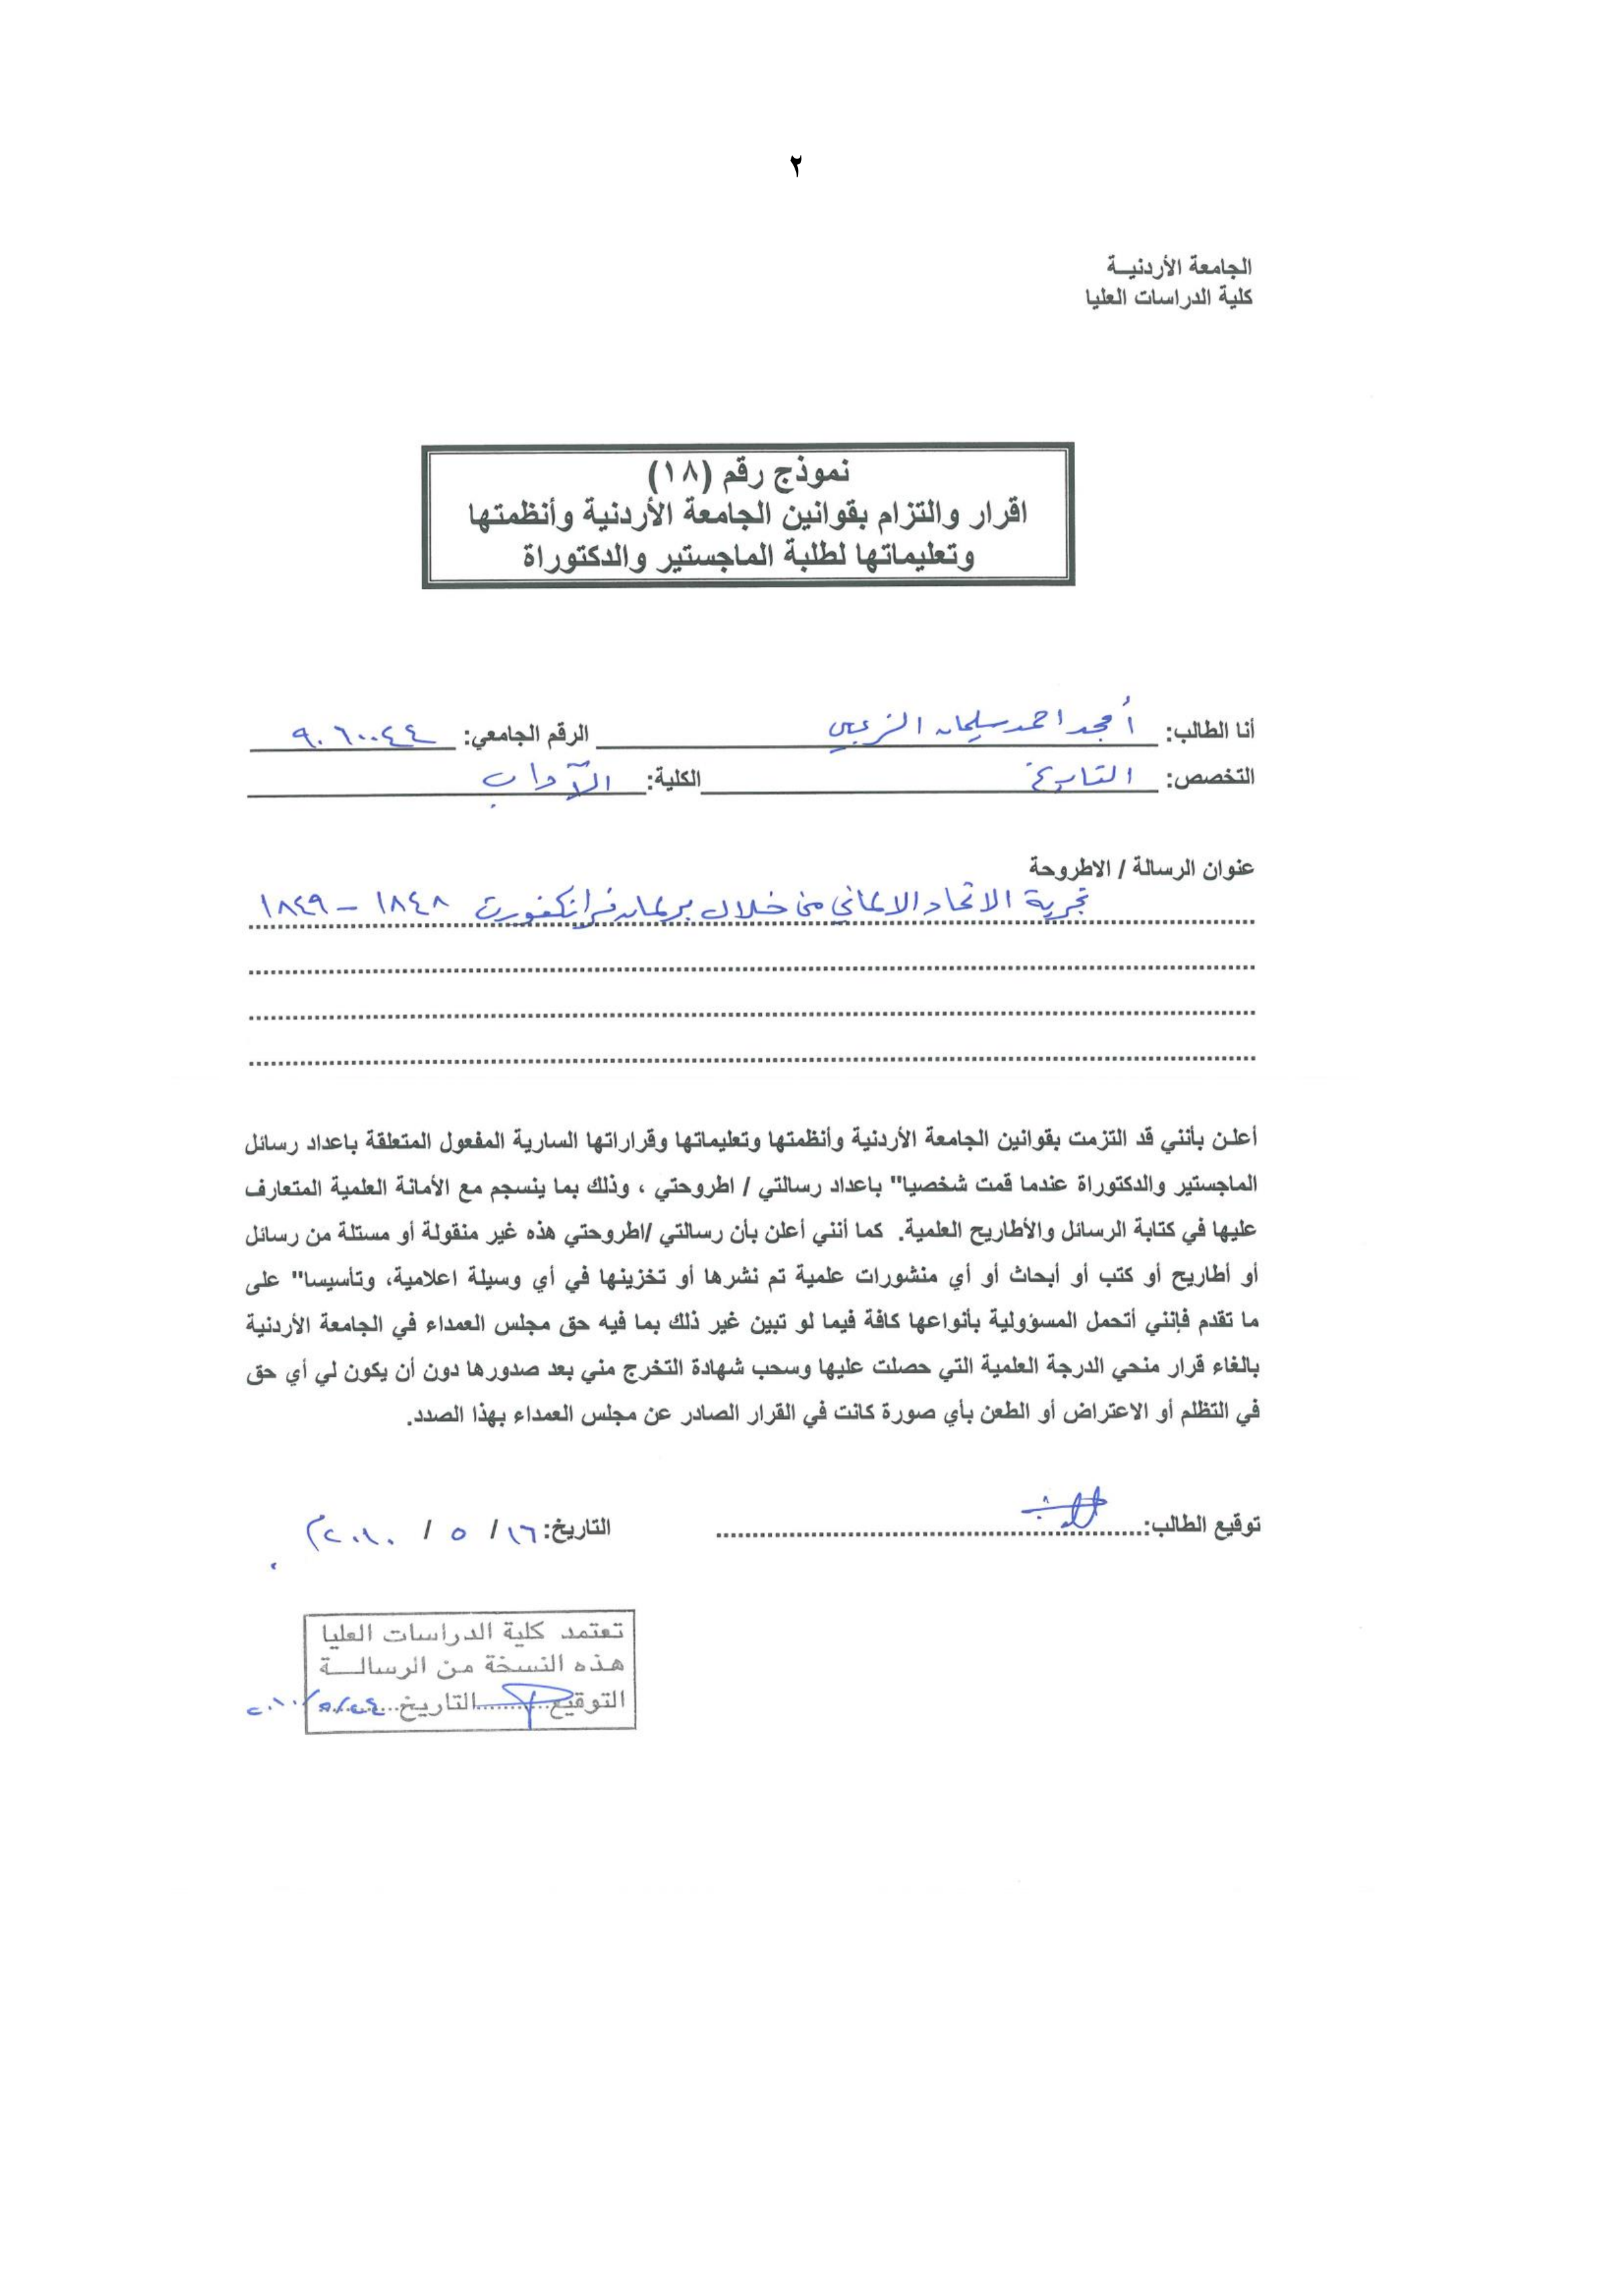 ٢
الجامعة الأردنيــة
كلية الدراسات العليا
نموذج رقم (١٨)
اقرار والتزام بقوانين الجامعة الأردنية وأنظمتها
وتعليماتها لطلبة الماجستير والدكتوراة
أنا الطالب: أمجد احمد سليمان الزعبي الرقم الجامعي: ٩٠٦٠٠٤٤
التخصص: التاريخ الكلية: الآداب
عنوان الرسالة / الاطروحة
تجربة الاتحاد الالماني من خلال برلمان فرانكفورت ١٨٤٨ - ١٨٤٩
أعلن بأنني قد التزمت بقوانين الجامعة الأردنية وأنظمتها وتعليماتها وقراراتها السارية المفعول المتعلقة باعداد رسائل
الماجستير والدكتوراة عندما قمت شخصيا" باعداد رسالتي / اطروحتي ، وذلك بما ينسجم مع الأمانة العلمية المتعارف
عليها في كتابة الرسائل والأطاريح العلمية. كما أنني أعلن بأن رسالتي /اطروحتي هذه غير منقولة أو مستلة من رسائل
أو أطاريح أو كتب أو أبحاث أو أي منشورات علمية تم نشرها أو تخزينها في أي وسيلة اعلامية، وتأسيسا" على
ما تقدم فإنني أتحمل المسؤولية بأنواعها كافة فيما لو تبين غير ذلك بما فيه حق مجلس العمداء في الجامعة الأردنية
بالغاء قرار منحي الدرجة العلمية التي حصلت عليها وسحب شهادة التخرج مني بعد صدورها دون أن يكون لي أي حق
في التظلم أو الاعتراض أو الطعن بأي صورة كانت في القرار الصادر عن مجلس العمداء بهذا الصدد.
توقيع الطالب: التاريخ: ١٦ / ٥ / ٢٠١٠م
تعتمد كلية الدراسات العليا
هذه النسخة من الرسالــة
التوقيع التاريخ